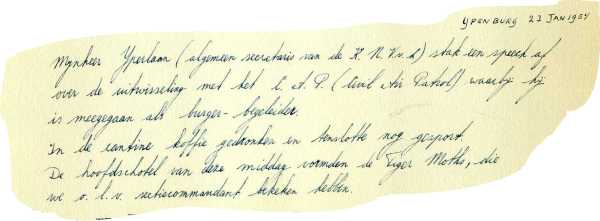 YPENBURG 23 JAN 1954
Mynheer Yperlaan (algemeen secretaris van de K.N.V.v.L) stak een speech af
over de uitwisseling met het C.A.P. (Civil Air Patrol) waarbij hij
is meegegaan als burger-begeleider.
In de cantine koffie gedronken en tenslotte nog gesport
De hoofdschotel van deze middag vormden de Tiger Moths, die
we o.l.v. sectiecommandant bekeken hebben.